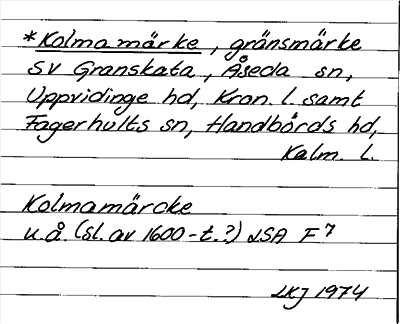 *Kolmamärke, gränsmärke
SV Granskata, Åseda sn,
Uppvidinge hd, Kron. l. samt
Fagerhults sn, Handbörds hd,
Kalm. l.
Kolmamärcke
u.å. (sl. av 1600-t.?) LSA F7
LKJ 1974